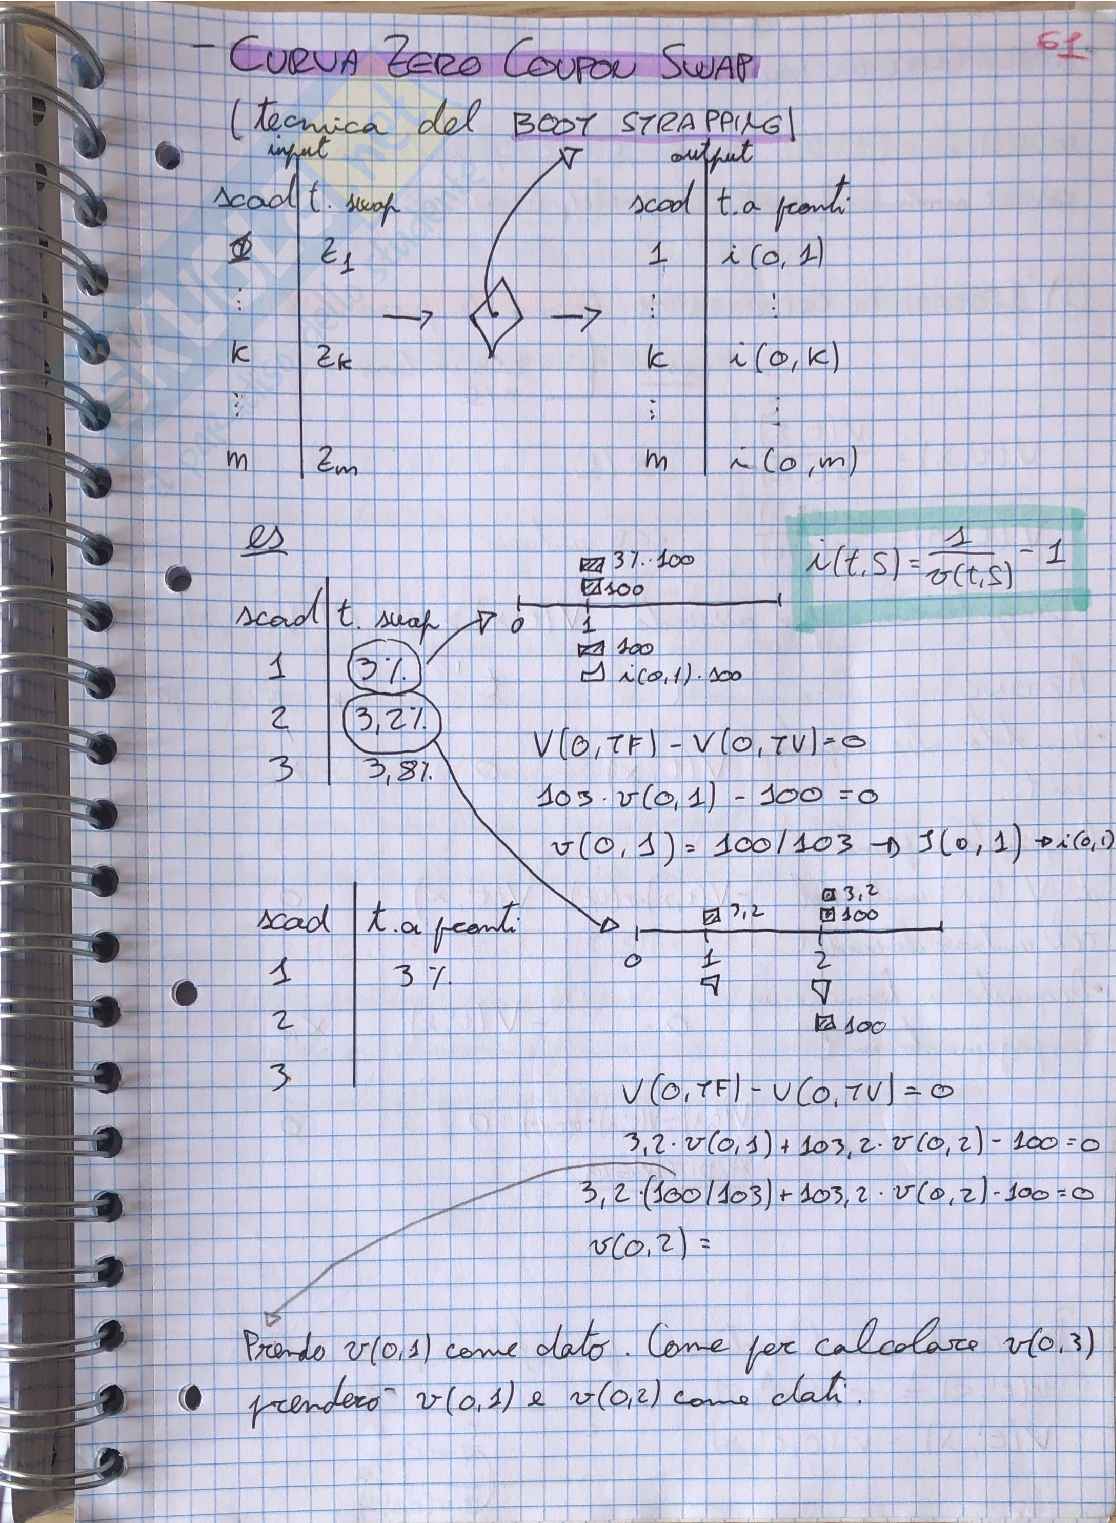 61
- CURVA ZERO COUPON SWAP
(tecnica del BOOT STRAPPING)
input
output
scad t. swap
scad t. a pronti
1 z1
1 i(0,1)
⋮
⋮ ⋮
→ →
k zk
k i(0,k)
⋮
⋮ ⋮
m zm
m i(0,m)
es
i(t,s) = 1/v(t,s) - 1
3%·100
100
scad t. swap
0 1
100
1 3%
i(0,1)·100
2 3,2%
3 3,8%
V(0,TF) - V(0,TV) = 0
103·v(0,1) - 100 = 0
v(0,1) = 100/103 → i(0,1)
scad t. a pronti
3,2
3,2
100
0 1 2
1 3%
2
100
3
V(0,TF) - V(0,TV) = 0
3,2·v(0,1) + 103,2·v(0,2) - 100 = 0
3,2·(100/103) + 103,2·v(0,2) - 100 = 0
v(0,2) =
Prendo v(0,1) come dato. Come per calcolare v(0,3)
prenderò v(0,1) e v(0,2) come dati.